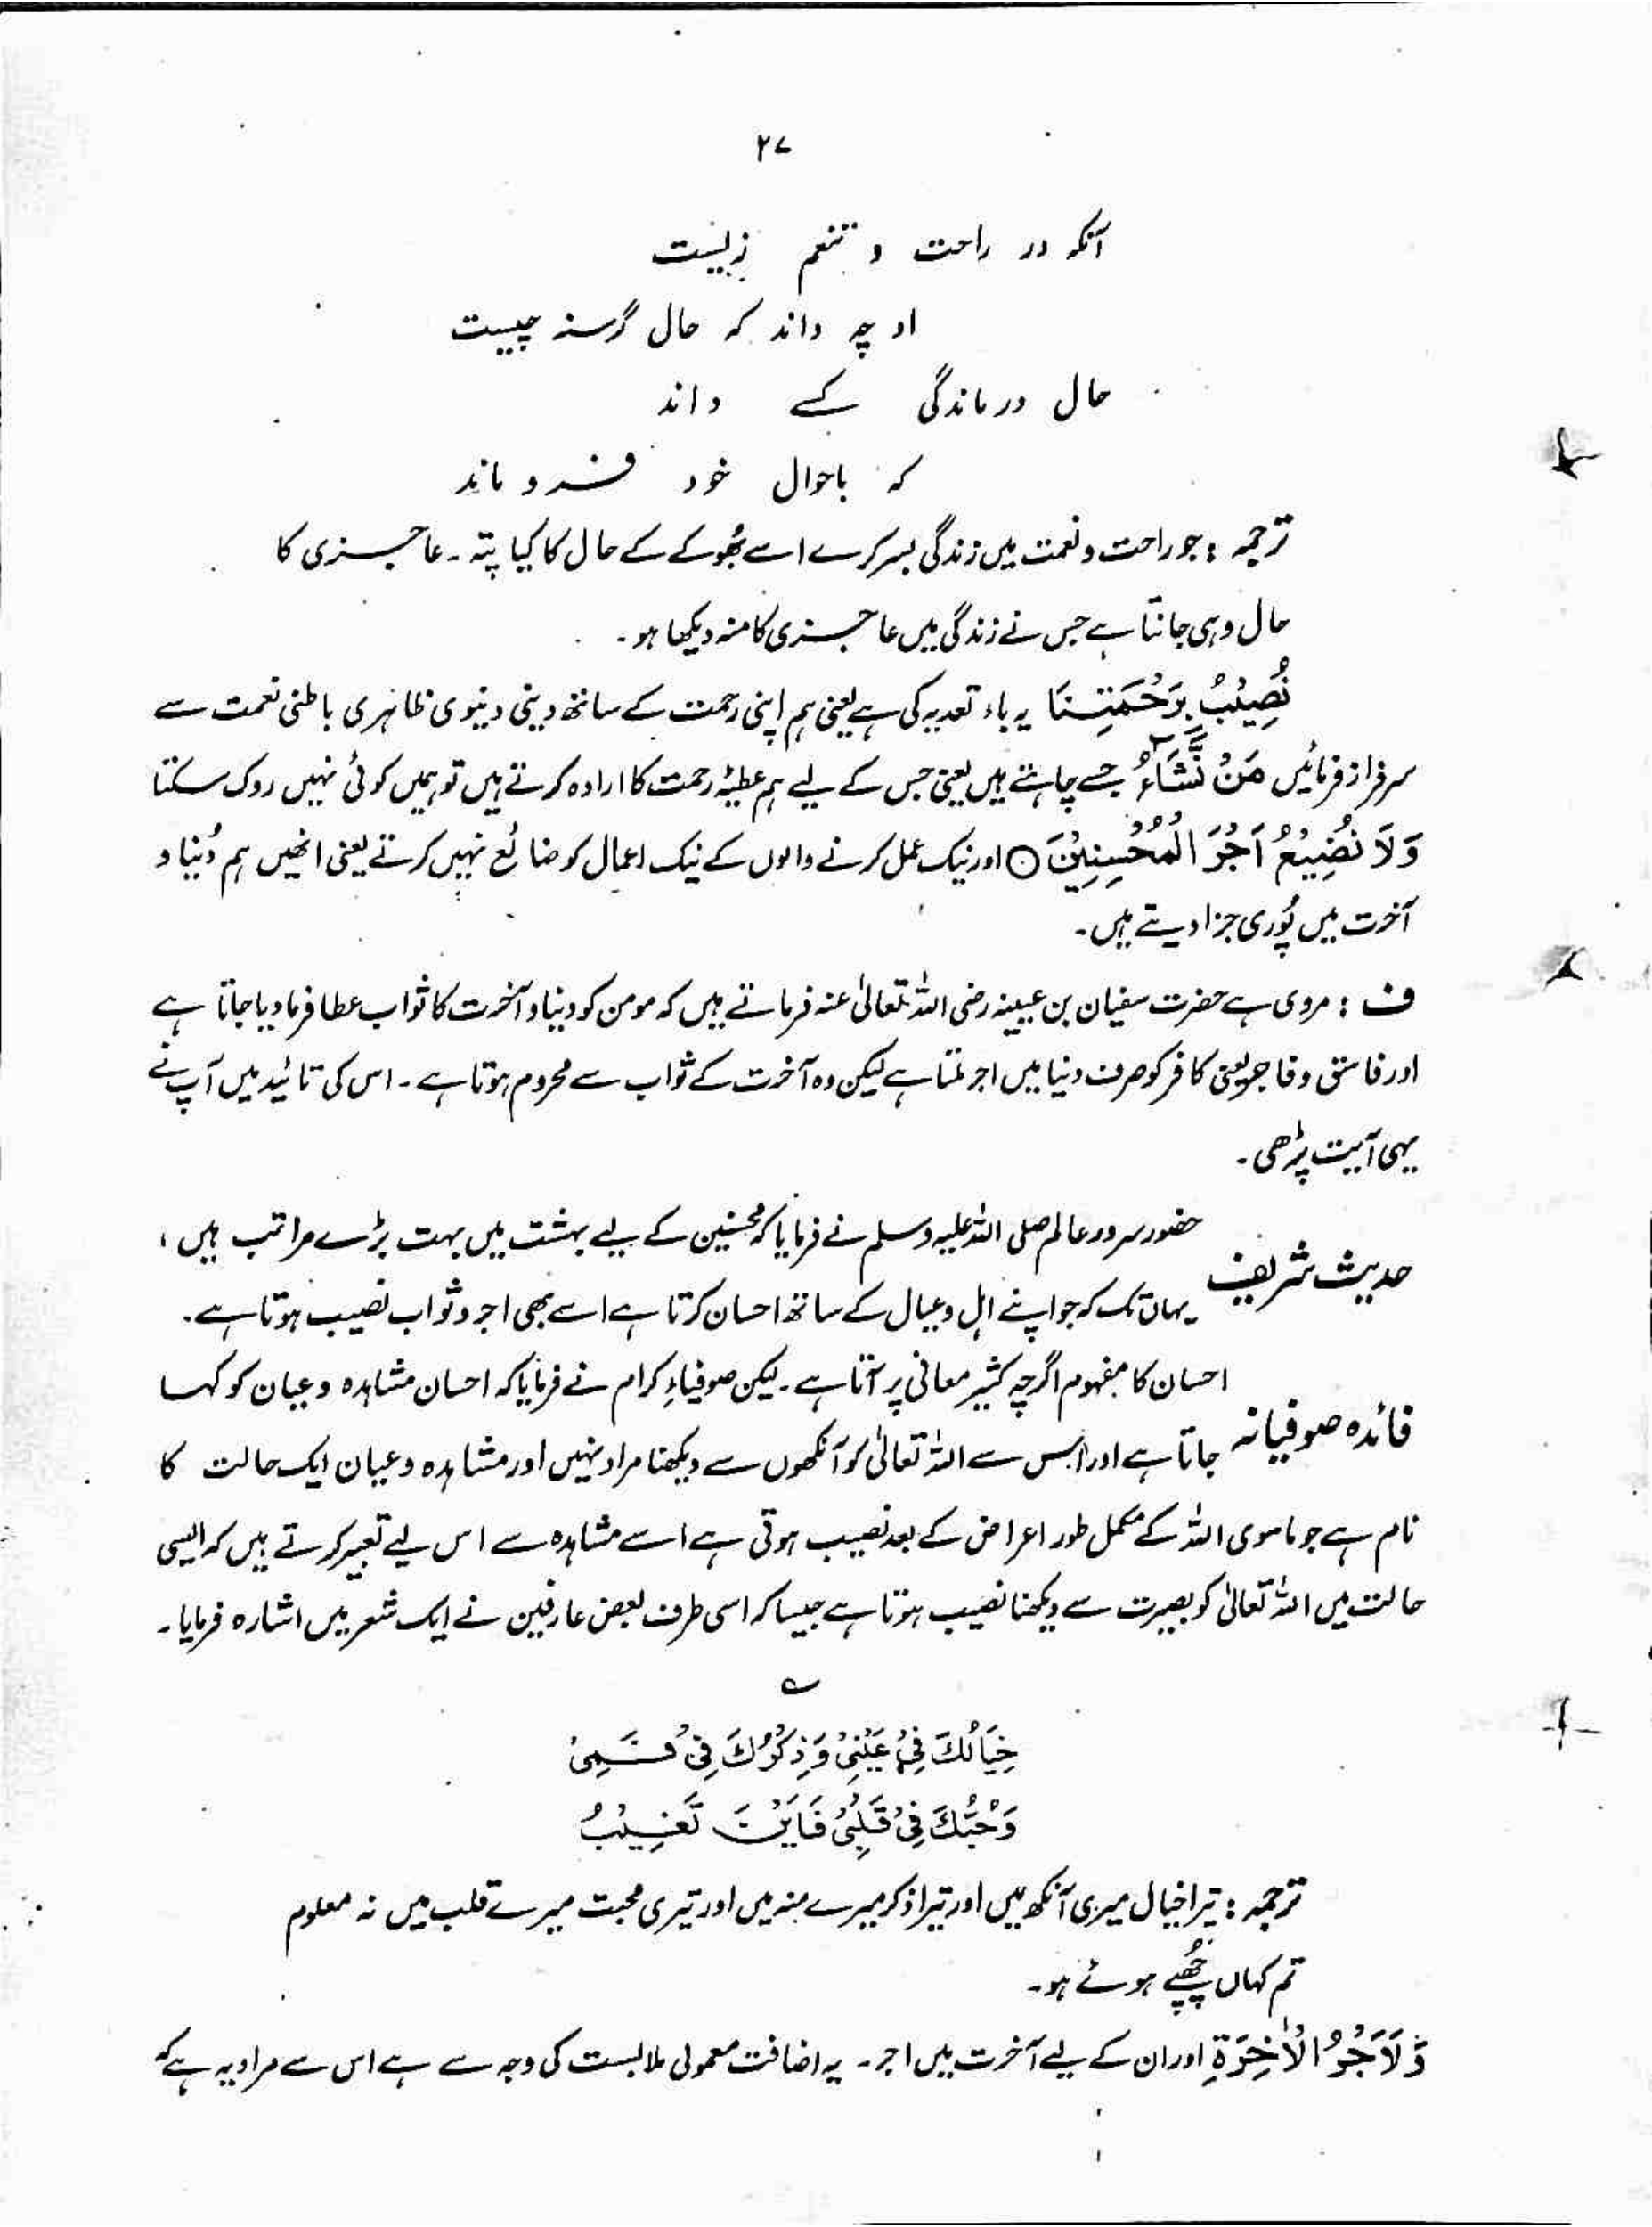 ۲۷
آنکہ در راحت و تنعم زیست
او چہ داند کہ حال گرسنہ چیست
حال درماندگی کسے داند
کہ باحوال خود فرو ماند
ترجمہ : جو راحت و نعمت میں زندگی بسر کرے اسے بھُوکے کے حال کا کیا پتہ ۔ عاجزی کا
حال وہی جانتا ہے جس نے زندگی میں عاجزی کا منہ دیکھا ہو ۔
نُصِیْبُ بِرَحْمَتِنَا یہ باء تعدیہ کی ہے یعنی ہم اپنی رحمت کے ساتھ دینی دنیوی ظاہری باطنی نعمت سے
سرفراز فرمائیں مَنْ نَّشَآءُ جسے چاہتے ہیں یعنی جس کے لیے ہم عطیۂ رحمت کا ارادہ کرتے ہیں تو ہمیں کوئی نہیں روک سکتا
وَلَا نُضِیْعُ اَجْرَ الْمُحْسِنِیْنَ ○ اور نیک عمل کرنے والوں کے نیک اعمال کو ضائع نہیں کرتے یعنی انھیں ہم دُنیا و
آخرت میں پُوری جزا دیتے ہیں ۔
ف : مروی ہے حضرت سفیان بن عیینہ رضی اللہ تعالیٰ عنہ فرماتے ہیں کہ مومن کو دنیا و آخرت کا ثواب عطا فرما دیا جاتا ہے
اور فاسق و فاجر یعنی کافر کو صرف دنیا میں اجر ملتا ہے لیکن وہ آخرت کے ثواب سے محروم ہوتا ہے ۔ اس کی تائید میں آپ نے
یہی آیت پڑھی ۔
حدیث شریف حضور سرور عالم صلی اللہ علیہ وسلم نے فرمایا کہ محسنین کے لیے بہشت میں بہت بڑے مراتب ہیں ،
یہاں تک کہ جو اپنے اہل و عیال کے ساتھ احسان کرتا ہے اسے بھی اجر و ثواب نصیب ہوتا ہے ۔
فائدہ صوفیانہ احسان کا مفہوم اگرچہ کثیر معانی پر آتا ہے ۔ لیکن صوفیاءِ کرام نے فرمایا کہ احسان مشاہدہ و عیان کو کہا
جاتا ہے اور اس سے اللہ تعالیٰ کو آنکھوں سے دیکھنا مراد نہیں اور مشاہدہ و عیان ایک حالت کا
نام ہے جو ماسوی اللہ کے مکمل طور اعراض کے بعد نصیب ہوتی ہے اسے مشاہدہ سے اس لیے تعبیر کرتے ہیں کہ ایسی
حالت میں اللہ تعالیٰ کو بصیرت سے دیکھنا نصیب ہوتا ہے جیسا کہ اسی طرف بعض عارفین نے ایک شعر میں اشارہ فرمایا ۔
؎
خِیَالُكَ فِیْ عَیْنِیْ وَذِكْرُكَ فِیْ فَمِیْ
وَحُبُّكَ فِیْ قَلْبِیْ فَاَیْنَ تَغِیْبُ
ترجمہ : تیرا خیال میری آنکھ میں اور تیرا ذکر میرے منہ میں اور تیری محبت میرے قلب میں نہ معلوم
تم کہاں چُھپے ہوئے ہو ۔
وَلَاَجْرُ الْاٰخِرَةِ اور ان کے لیے آخرت میں اجر ۔ یہ اضافت معمولی ملابست کی وجہ سے ہے اس سے مراد یہ ہے کہ